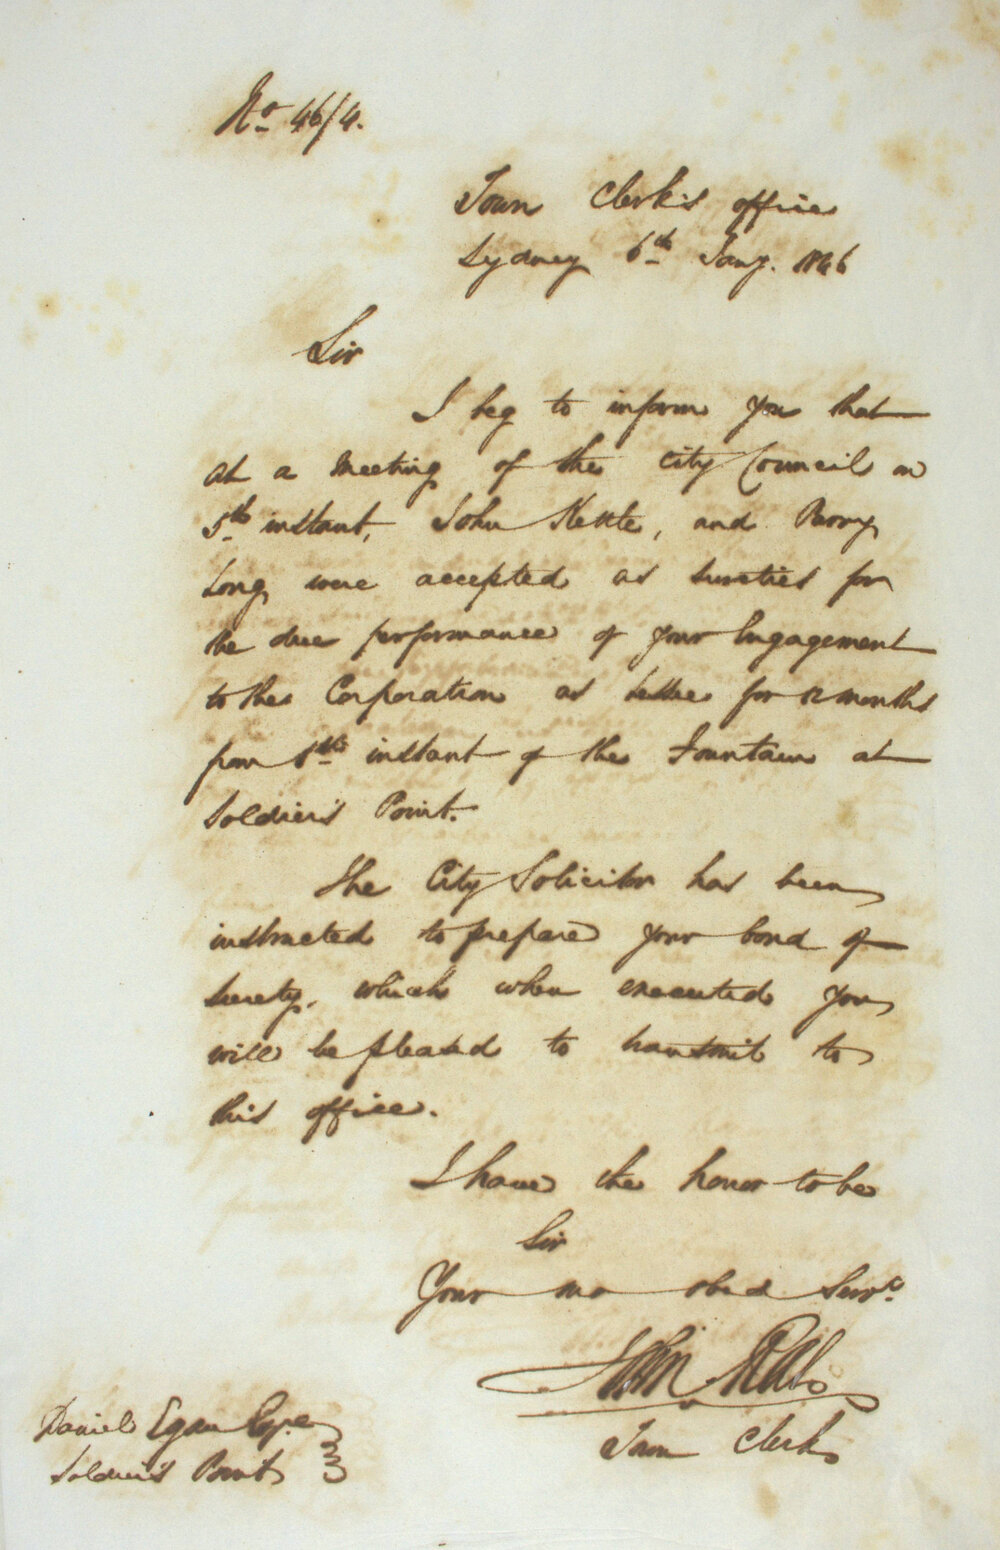 No 46/4.
Town Clerk's office
Sydney 6th Jany. 1846
Sir
I beg to inform you that
at a Meeting of the City Council on
5th instant, John Kettle, and Barry
Long, were accepted as sureties for
the due performance of your Engagement
to the Corporation as Lessee for 12 months
from 1st instant of the Fountain at
Soldier's Point.
The City Solicitor has been
instructed to prepare your bond of
surety, which when executed you
will be pleased to transmit to
this office.
I have the honor to be
Sir
Your mo obed Servt
John
Town Clerk
Daniel Egan Esqre
Soldier's Point